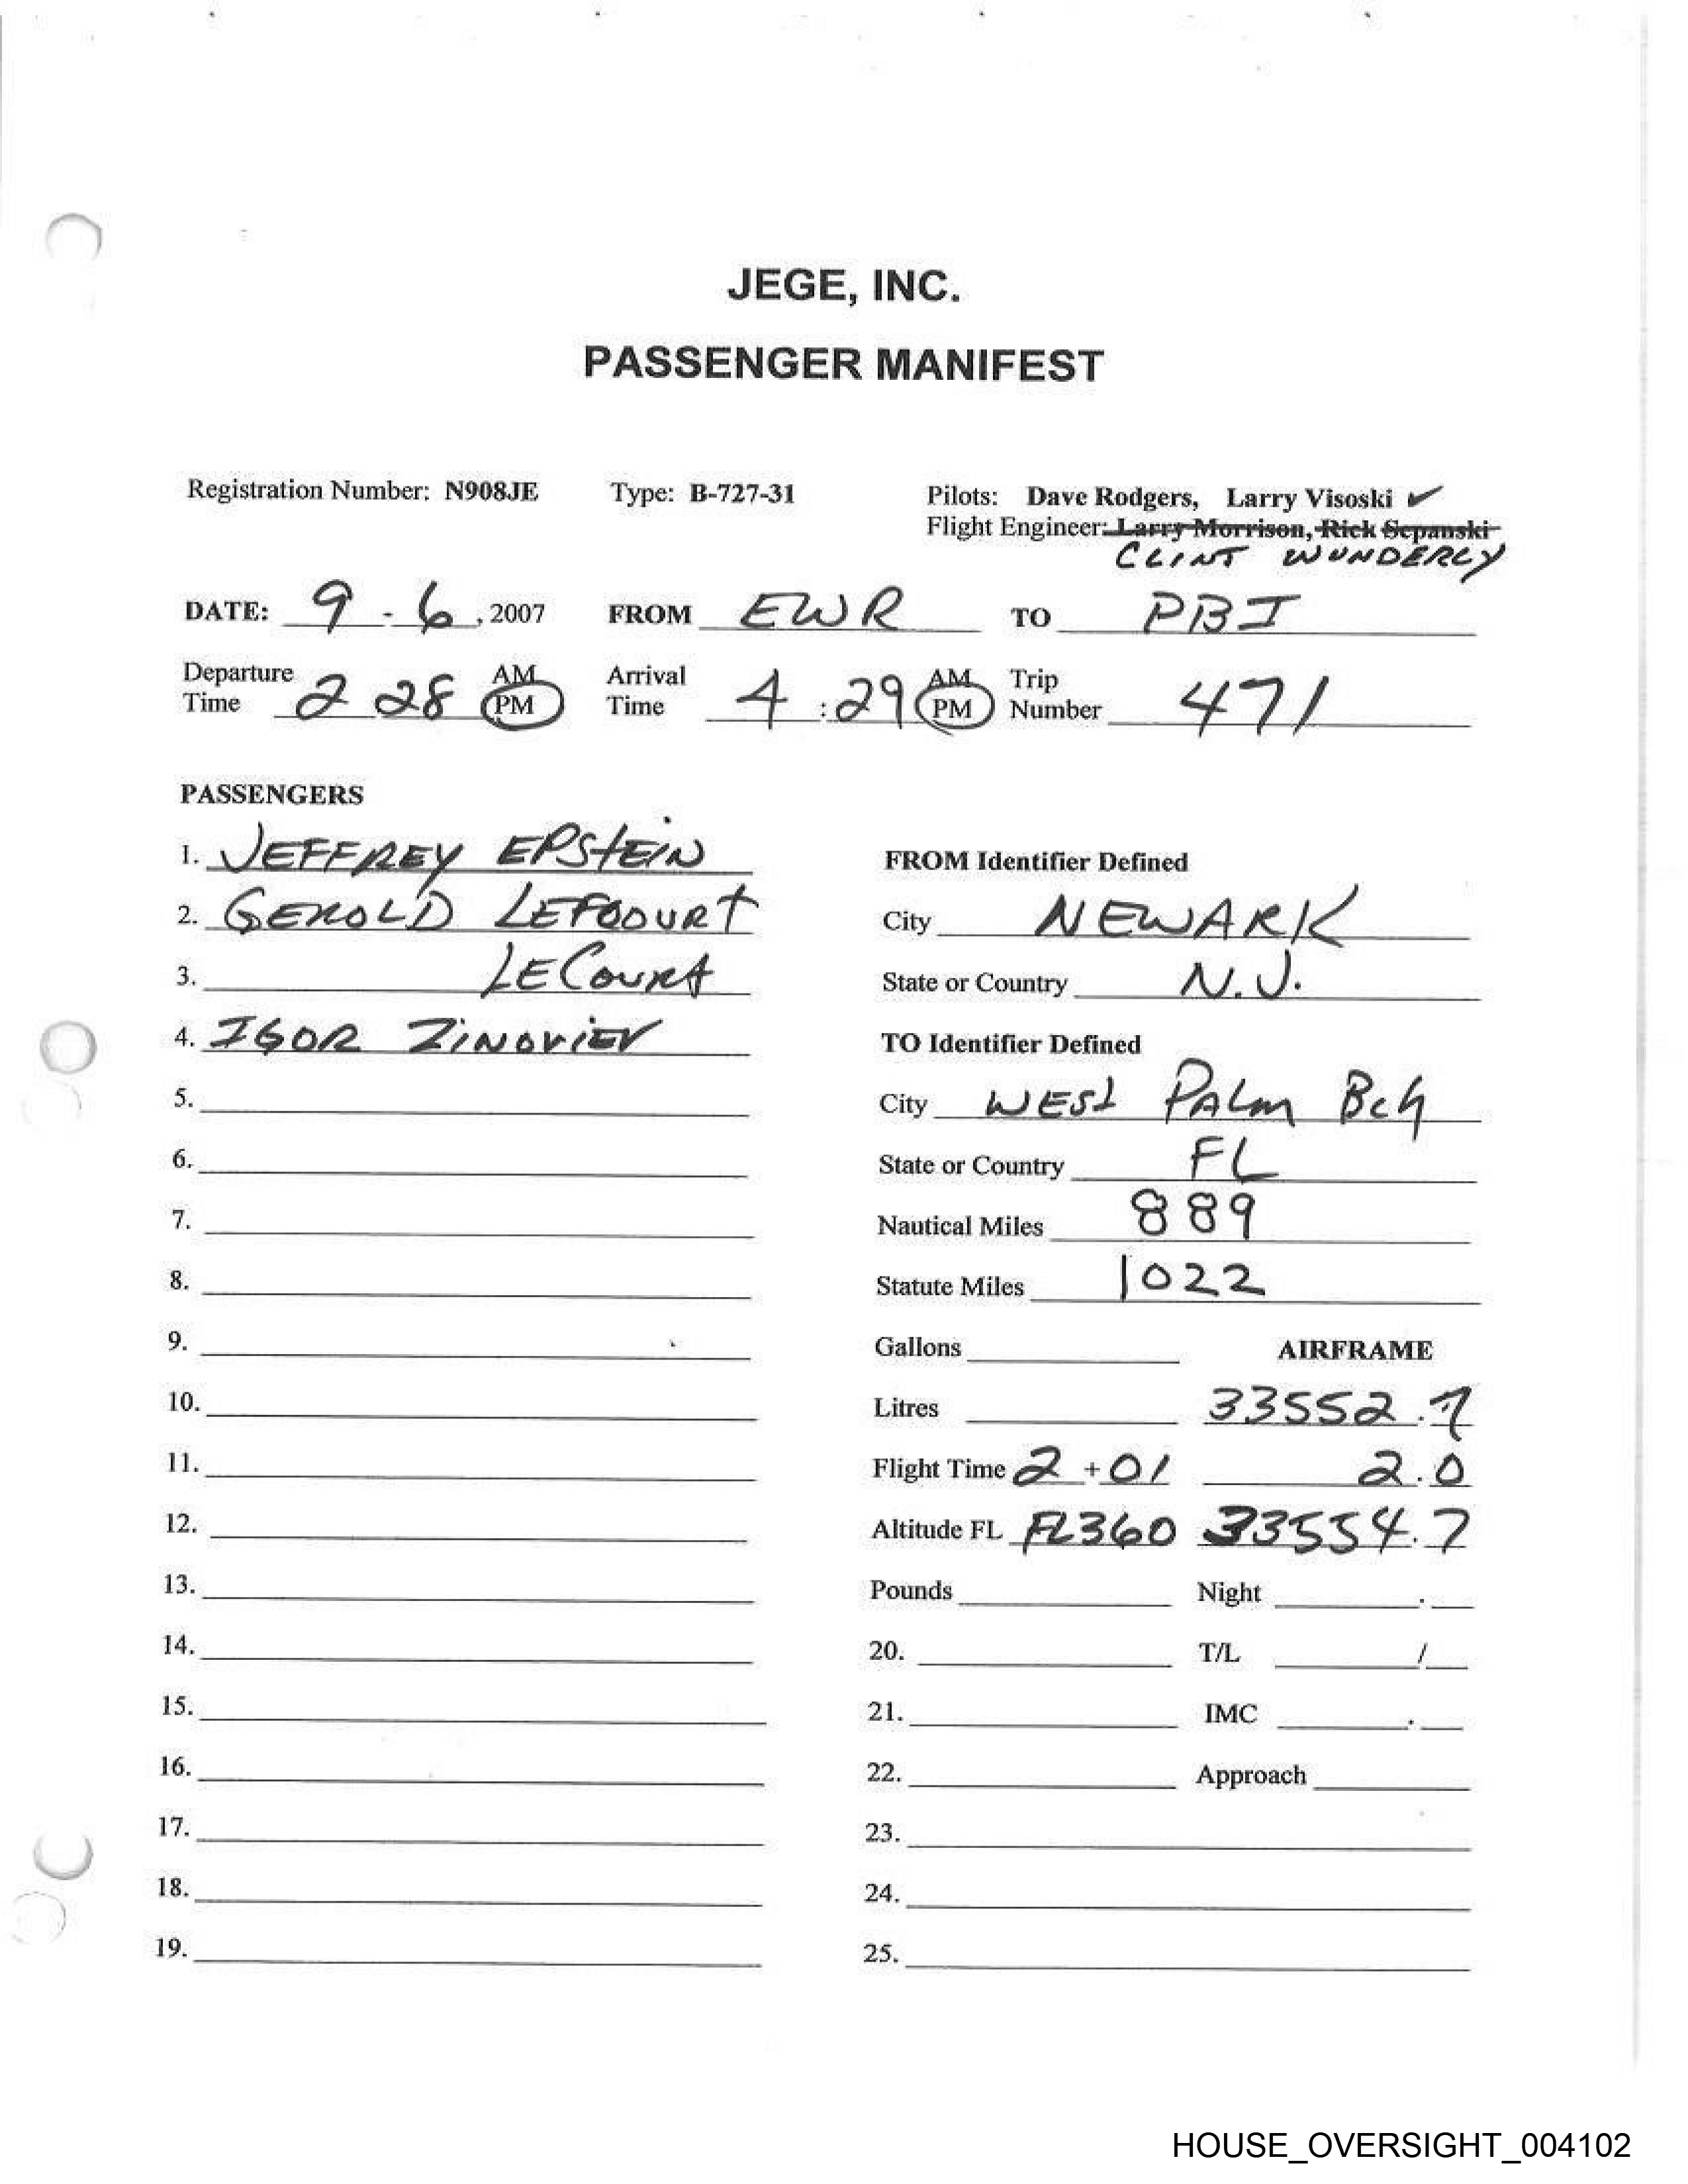 JEGE, INC.
PASSENGER MANIFEST
Registration Number: N908JE Type: B-727-31 Pilots: Dave Rodgers, Larry Visoski ✓
Flight Engineer: Larry Morrison, Rick Sepanski
CLINT WUNDERLY
DATE: 9 - 6, 2007 FROM EWR TO PBI
Departure Time 2 28 AM PM Arrival Time 4:29 AM PM Trip Number 471
PASSENGERS
1. JEFFREY EPSTEIN
2. GEROLD LEFCOURT
3. LECOURT
4. IGOR ZINOVIEV
5.
6.
7.
8.
9.
10.
11.
12.
13.
14.
15.
16.
17.
18.
19.
FROM Identifier Defined
City NEWARK
State or Country N.J.
TO Identifier Defined
City WEST PALM Bch
State or Country FL
Nautical Miles 889
Statute Miles 1022
Gallons AIRFRAME
Litres 33552.7
Flight Time 2 + 01 2.0
Altitude FL FL360 33554.7
Pounds Night .
20. T/L /
21. IMC .
22. Approach
23.
24.
25.
HOUSE_OVERSIGHT_004102